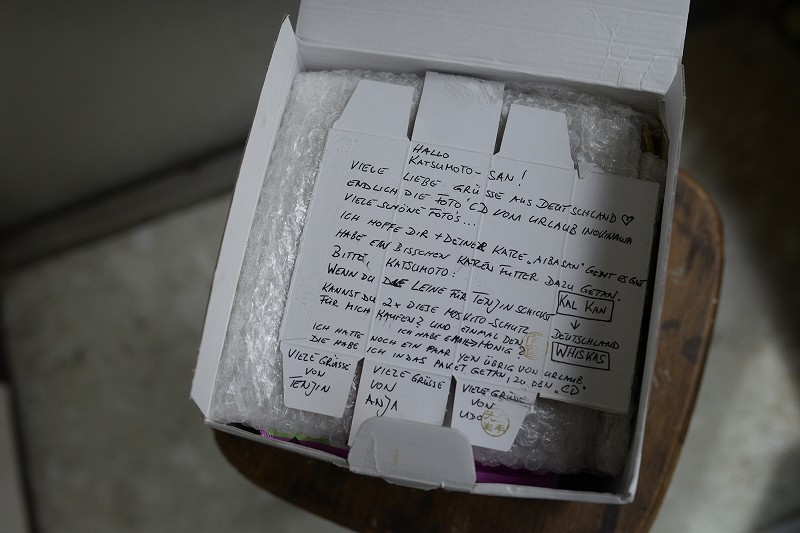 HALLO
KATSUMOTO-SAN!
VIELE LIEBE GRÜSSE AUS DEUTSCHLAND ♡
ENDLICH DIE FOTO'CD VOM URLAUB IN OKINAWA
VIELE SCHÖNE FOTO'S...
ICH HOFFE DIR + DEINER KATZE „AIBASAN" GEHT ES GUT
HABE EIN BISSCHEN KATZEN FUTTER DAZU GETAN.
BITTE, KATSUMOTO:
WENN DU DIE LEINE FÜR TENJIN SCHICKST
KANNST DU 2x DIESE MOSKITO-SCHUTZ
FÜR MICH KAUFEN? UND EINMAL DEN
HONIG?
ICH HATTE NOCH EIN PAAR YEN ÜBRIG VON URLAUB
DIE HABE ICH IN DAS PAKET GETAN, ZU DEN „CD"
KAL KAN
↓
DEUTSCHLAND
WHISKAS
VIELE GRÜSSE
VON
TENJIN
VIELE GRÜSSE
VON
ANJA
VIELE GRÜSSE
VON
UDO